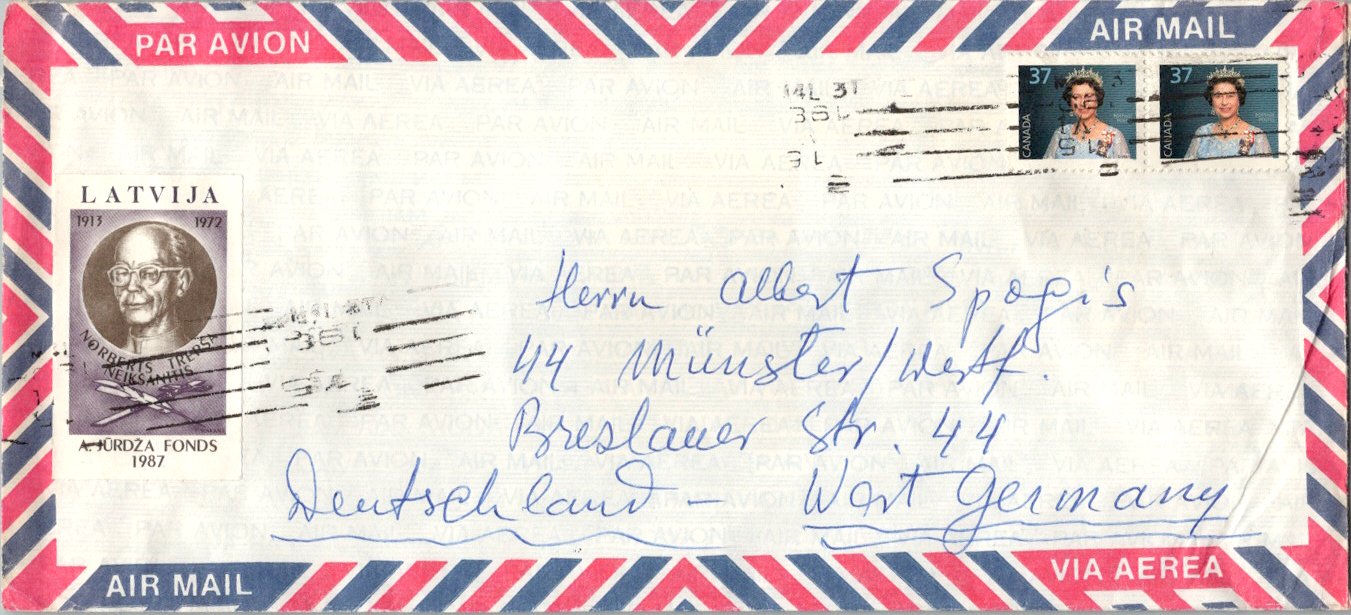 PAR AVION
AIR MAIL
37
CANADA
37
CANADA
LATVIJA
1913 1972
NORBERTS NEIKŠANIETIS TREPŠA
A. JŪRDŽA FONDS
1987
Herrn Albert Spogis
44 Münster/Westf.
Breslauer Str. 44
Deutschland – West Germany
AIR MAIL
VIA AEREA